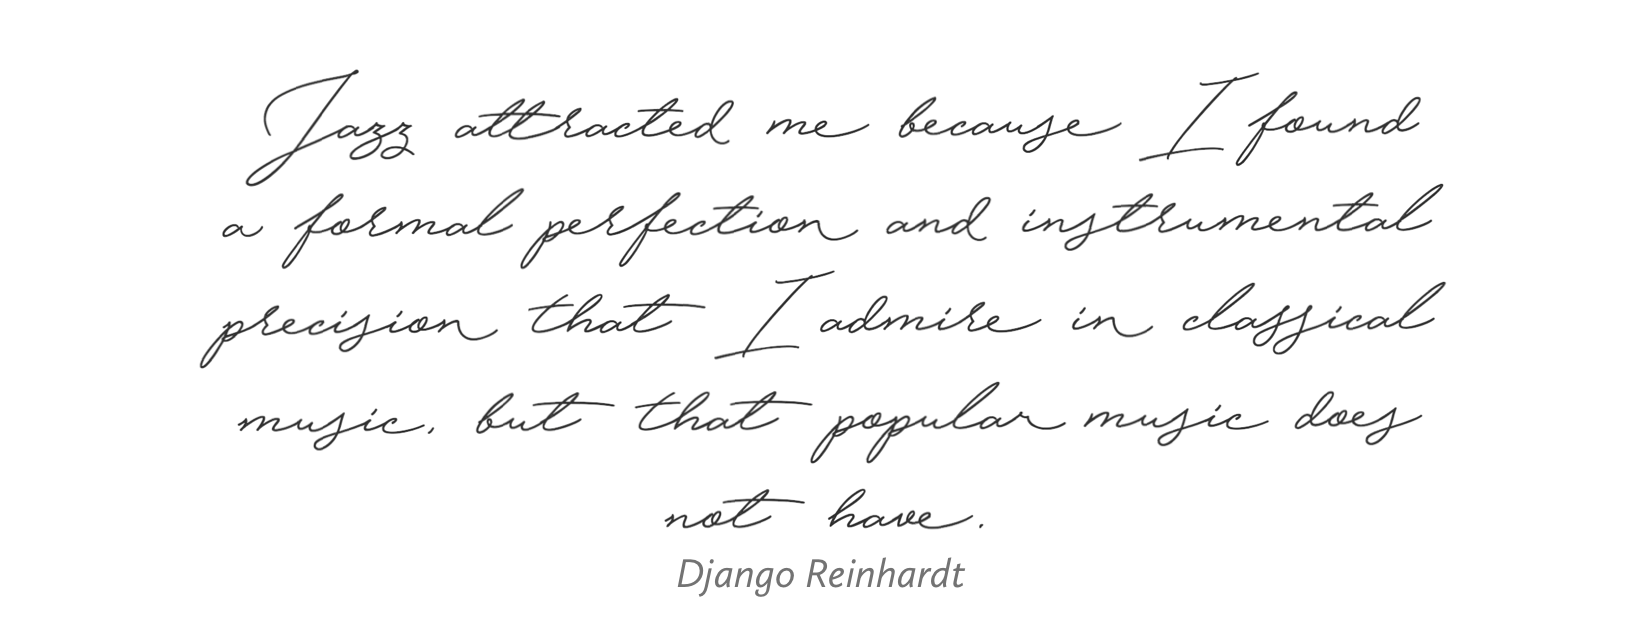 Jazz attracted me because I found
a formal perfection and instrumental
precision that I admire in classical
music, but that popular music does
not have.
Django Reinhardt